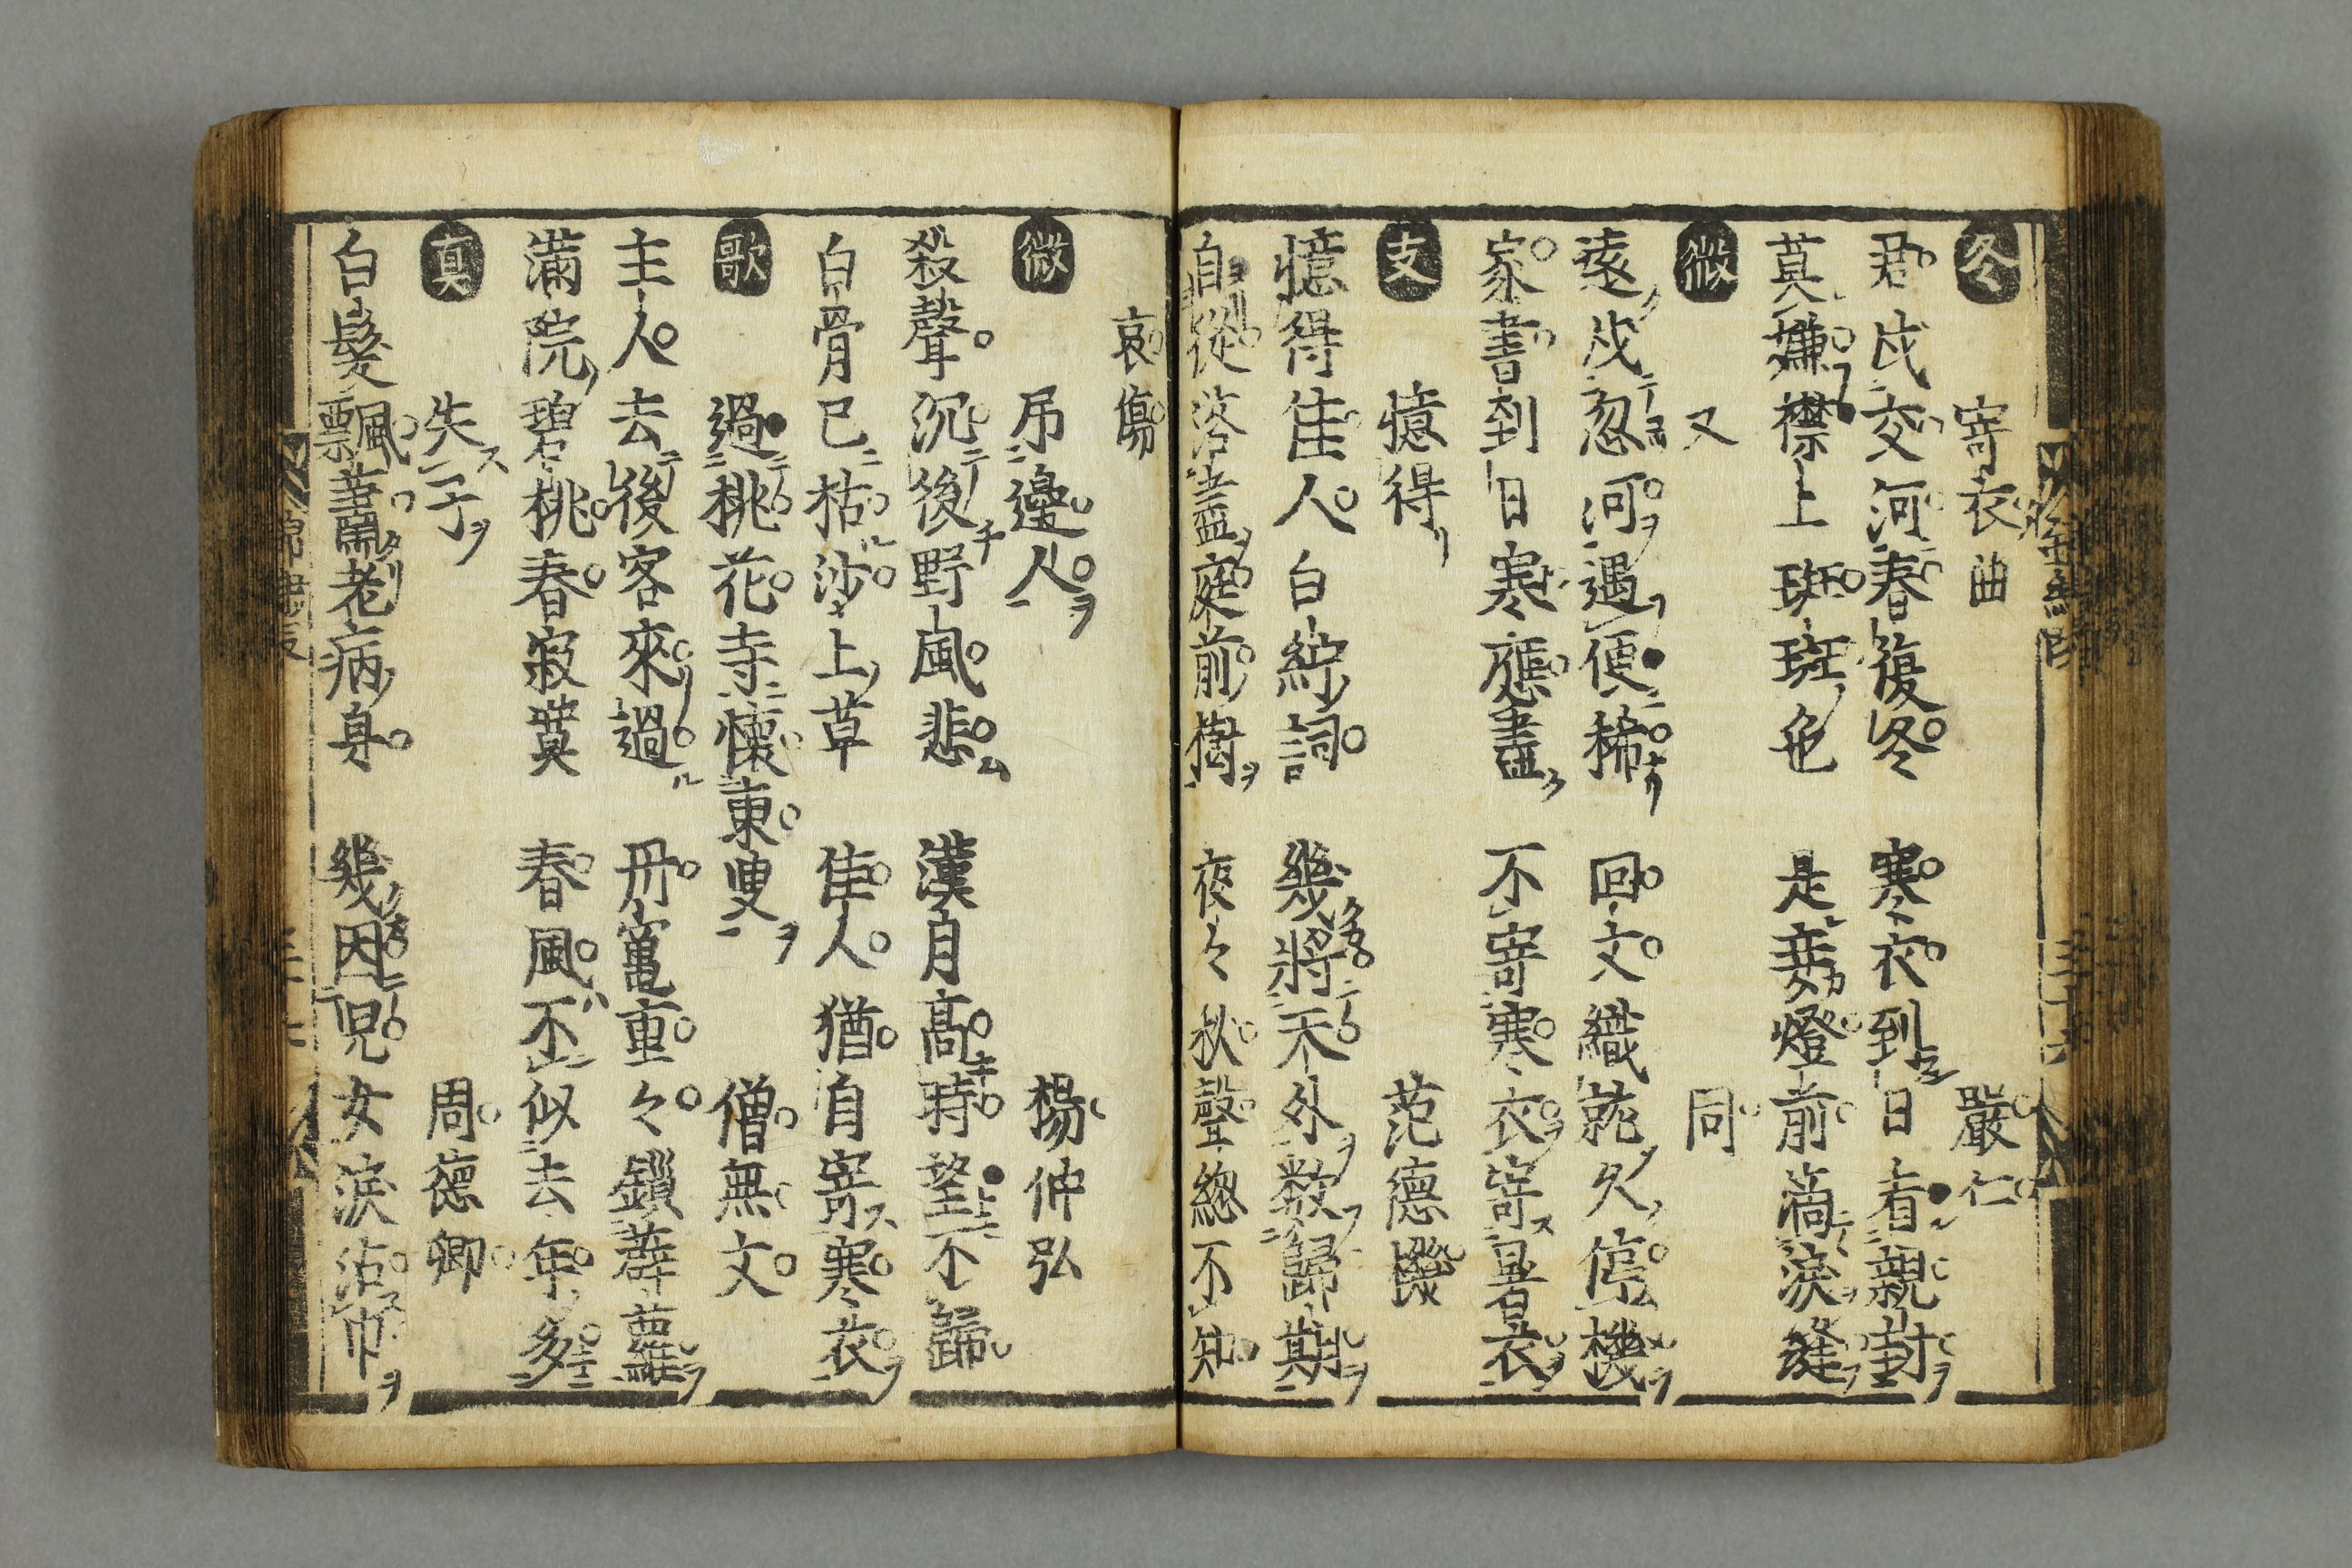 冬 寄衣曲 嚴仁
君戍交河春復冬 寒衣到日看親封
莫嫌襟上斑斑色 是妾燈前滴淚縫
微 又 同
遠戍忽河遇便稀 回文織就久停機
家書到日寒應盡 不寄寒衣寄暑衣
支 憶得 范德機
憶得佳人白紵詞 幾將天外数歸期
自從落盡窓前樹 夜々秋聲緫不知
哀傷
微 吊邊人 楊仲弘
殺聲沉後野風悲 漢月高時望不歸
白骨已枯沙上草 佳人猶自寄寒衣
歌 過桃花寺懷東叟 僧無文
主人去後客來過 丹竃重々鎖薜蘿
滿院碧桃春寂寞 春風不似去年多
真 失子 周德卿
白髮飄蕭老病身 幾因兒女淚沾巾